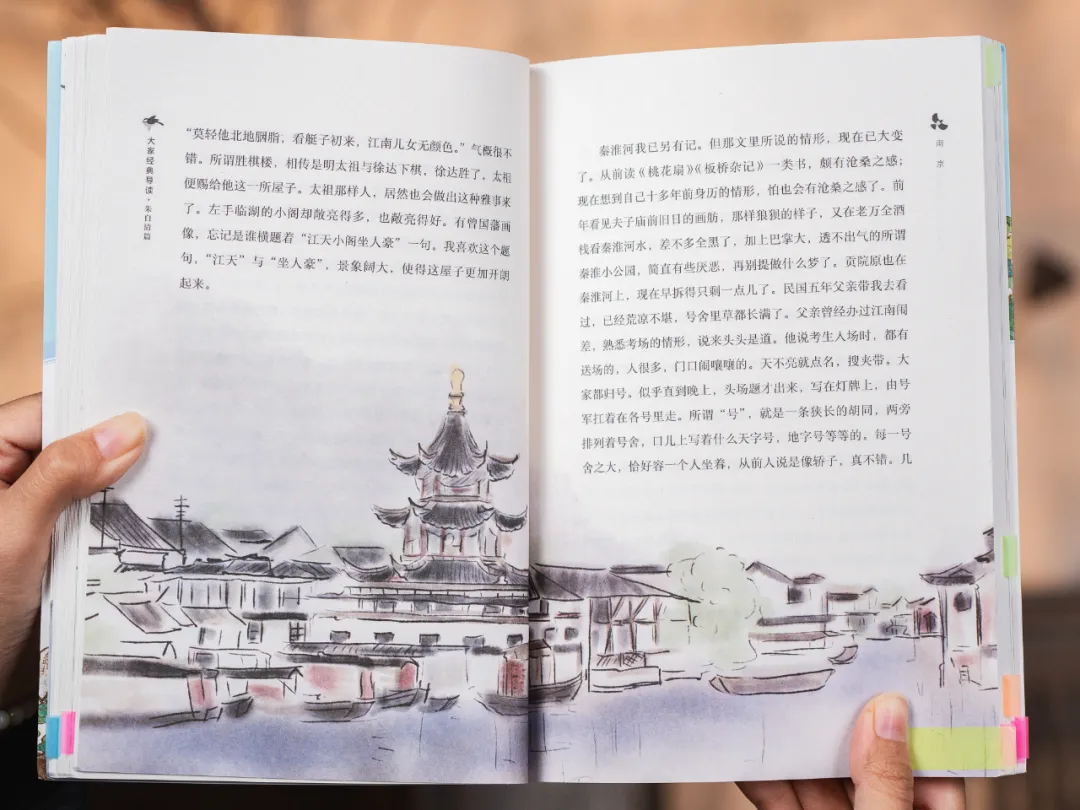 大家经典导读·朱自清篇
“莫轻他北地胭脂，看艇子初来，江南儿女无颜色。”气概很不
错。所谓胜棋楼，相传是明太祖与徐达下棋，徐达胜了，太祖
便赐给他这一所屋子。太祖那样人，居然也会做出这种雅事来
了。左手临湖的小阁却敞亮得多，也敞亮得好。有曾国藩画
像，忘记是谁横题着“江天小阁坐人豪”一句。我喜欢这个题
句，“江天”与“坐人豪”，景象阔大，使得这屋子更加开朗
起来。
南京
秦淮河我已另有记。但那文里所说的情形，现在已大变
了。从前读《桃花扇》《板桥杂记》一类书，颇有沧桑之感；
现在想到自己十多年前身历的情形，怕也会有沧桑之感了。前
年看见夫子庙前旧日的画舫，那样狼狈的样子，又在老万全酒
栈看秦淮河水，差不多全黑了，加上巴掌大，透不出气的所谓
秦淮小公园，简直有些厌恶，再别提做什么梦了。贡院原也在
秦淮河上，现在早拆得只剩一点儿了。民国五年父亲带我去看
过，已经荒凉不堪，号舍里草都长满了。父亲曾经办过江南闱
差，熟悉考场的情形，说来头头是道。他说考生入场时，都有
送场的，人很多，门口闹嚷嚷的。天不亮就点名，搜夹带。大
家都归号。似乎直到晚上，头场题才出来，写在灯牌上，由号
军扛着在各号里走。所谓“号”，就是一条狭长的胡同，两旁
排列着号舍，口儿上写着什么天字号，地字号等等的。每一号
舍之大，恰好容一个人坐着，从前人说是像轿子，真不错。几